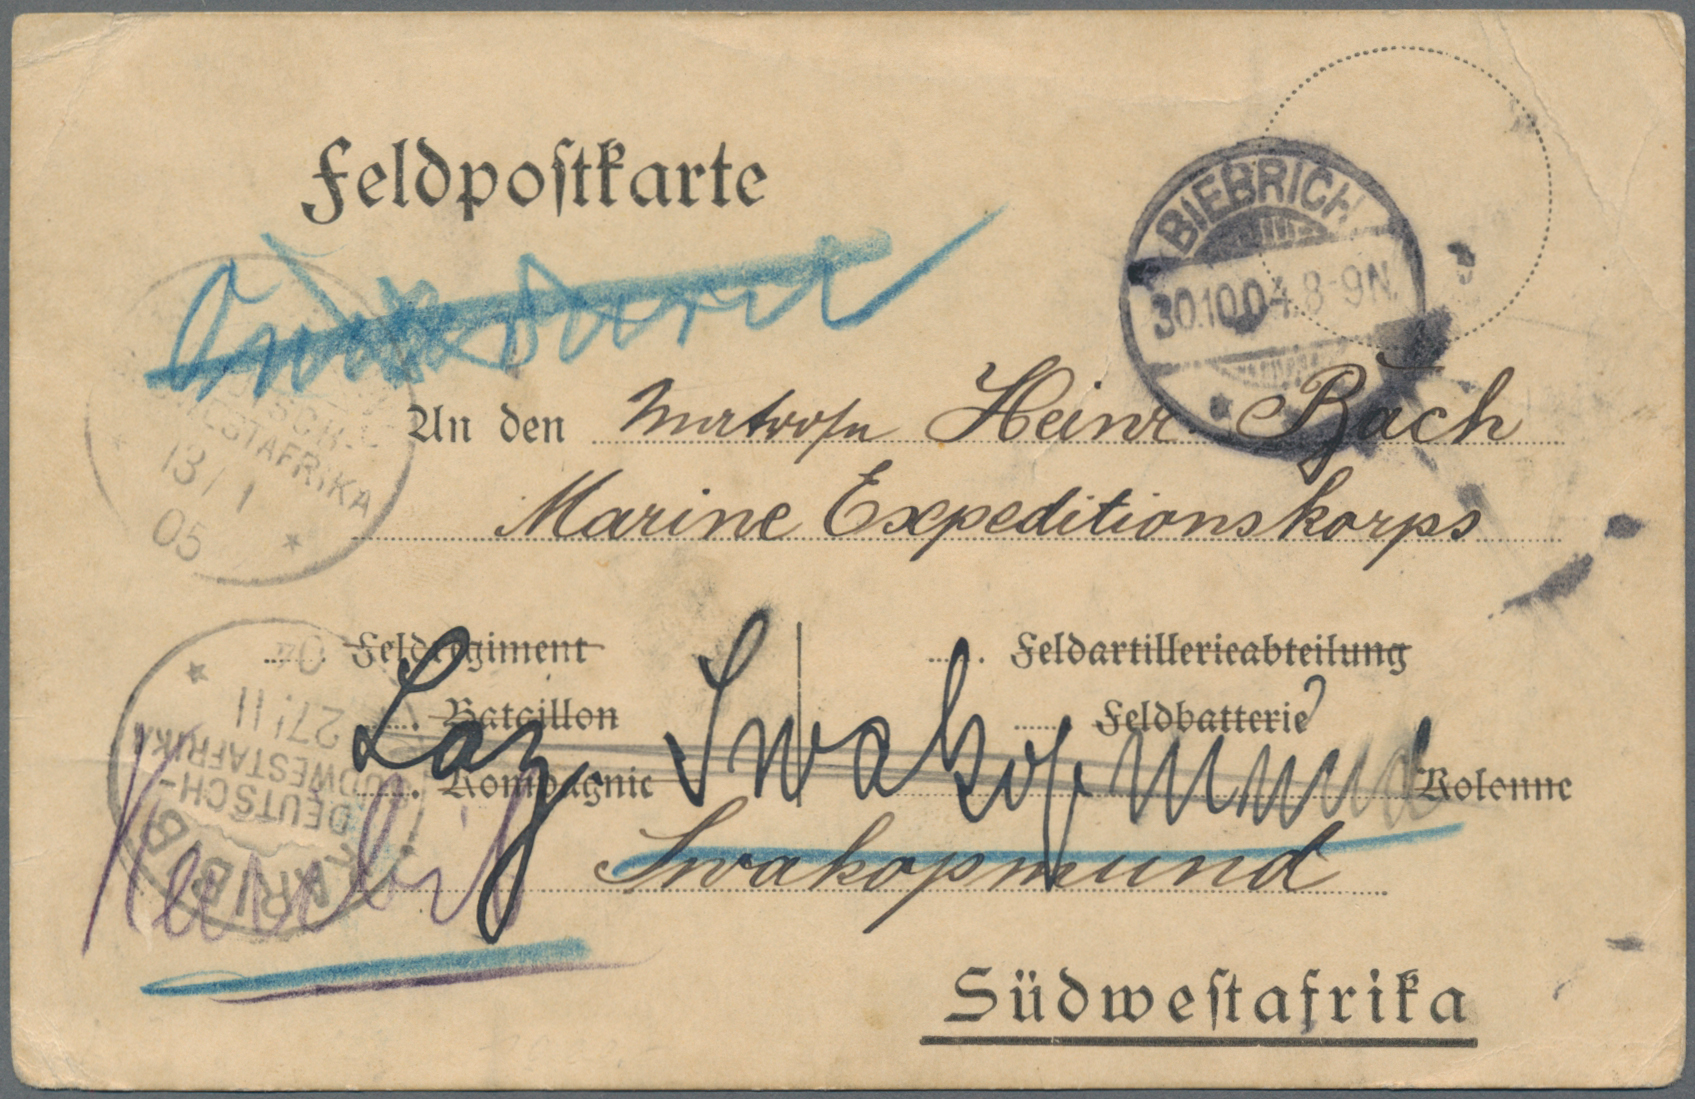 Feldpostkarte
BIEBRICH
30.10.04.8-9N.
An den Matrosen Heinr. Bach
Marine Expeditionskorps
SÜDWESTAFRIKA
13/1
05
Feldregiment
Feldartillerieabteilung
Bataillon
Feldbatterie
Laz Swakopmund
Kompagnie
Kolonne
Swakopmund
KARIBIB
DEUTSCH-
SÜDWESTAFRIKA
27/11
04
Südwestafrika